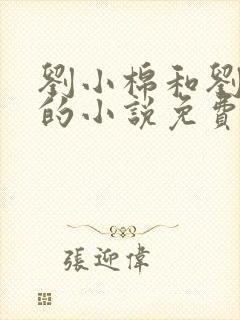 劉小棉和劉
的小說免費
張迎偉